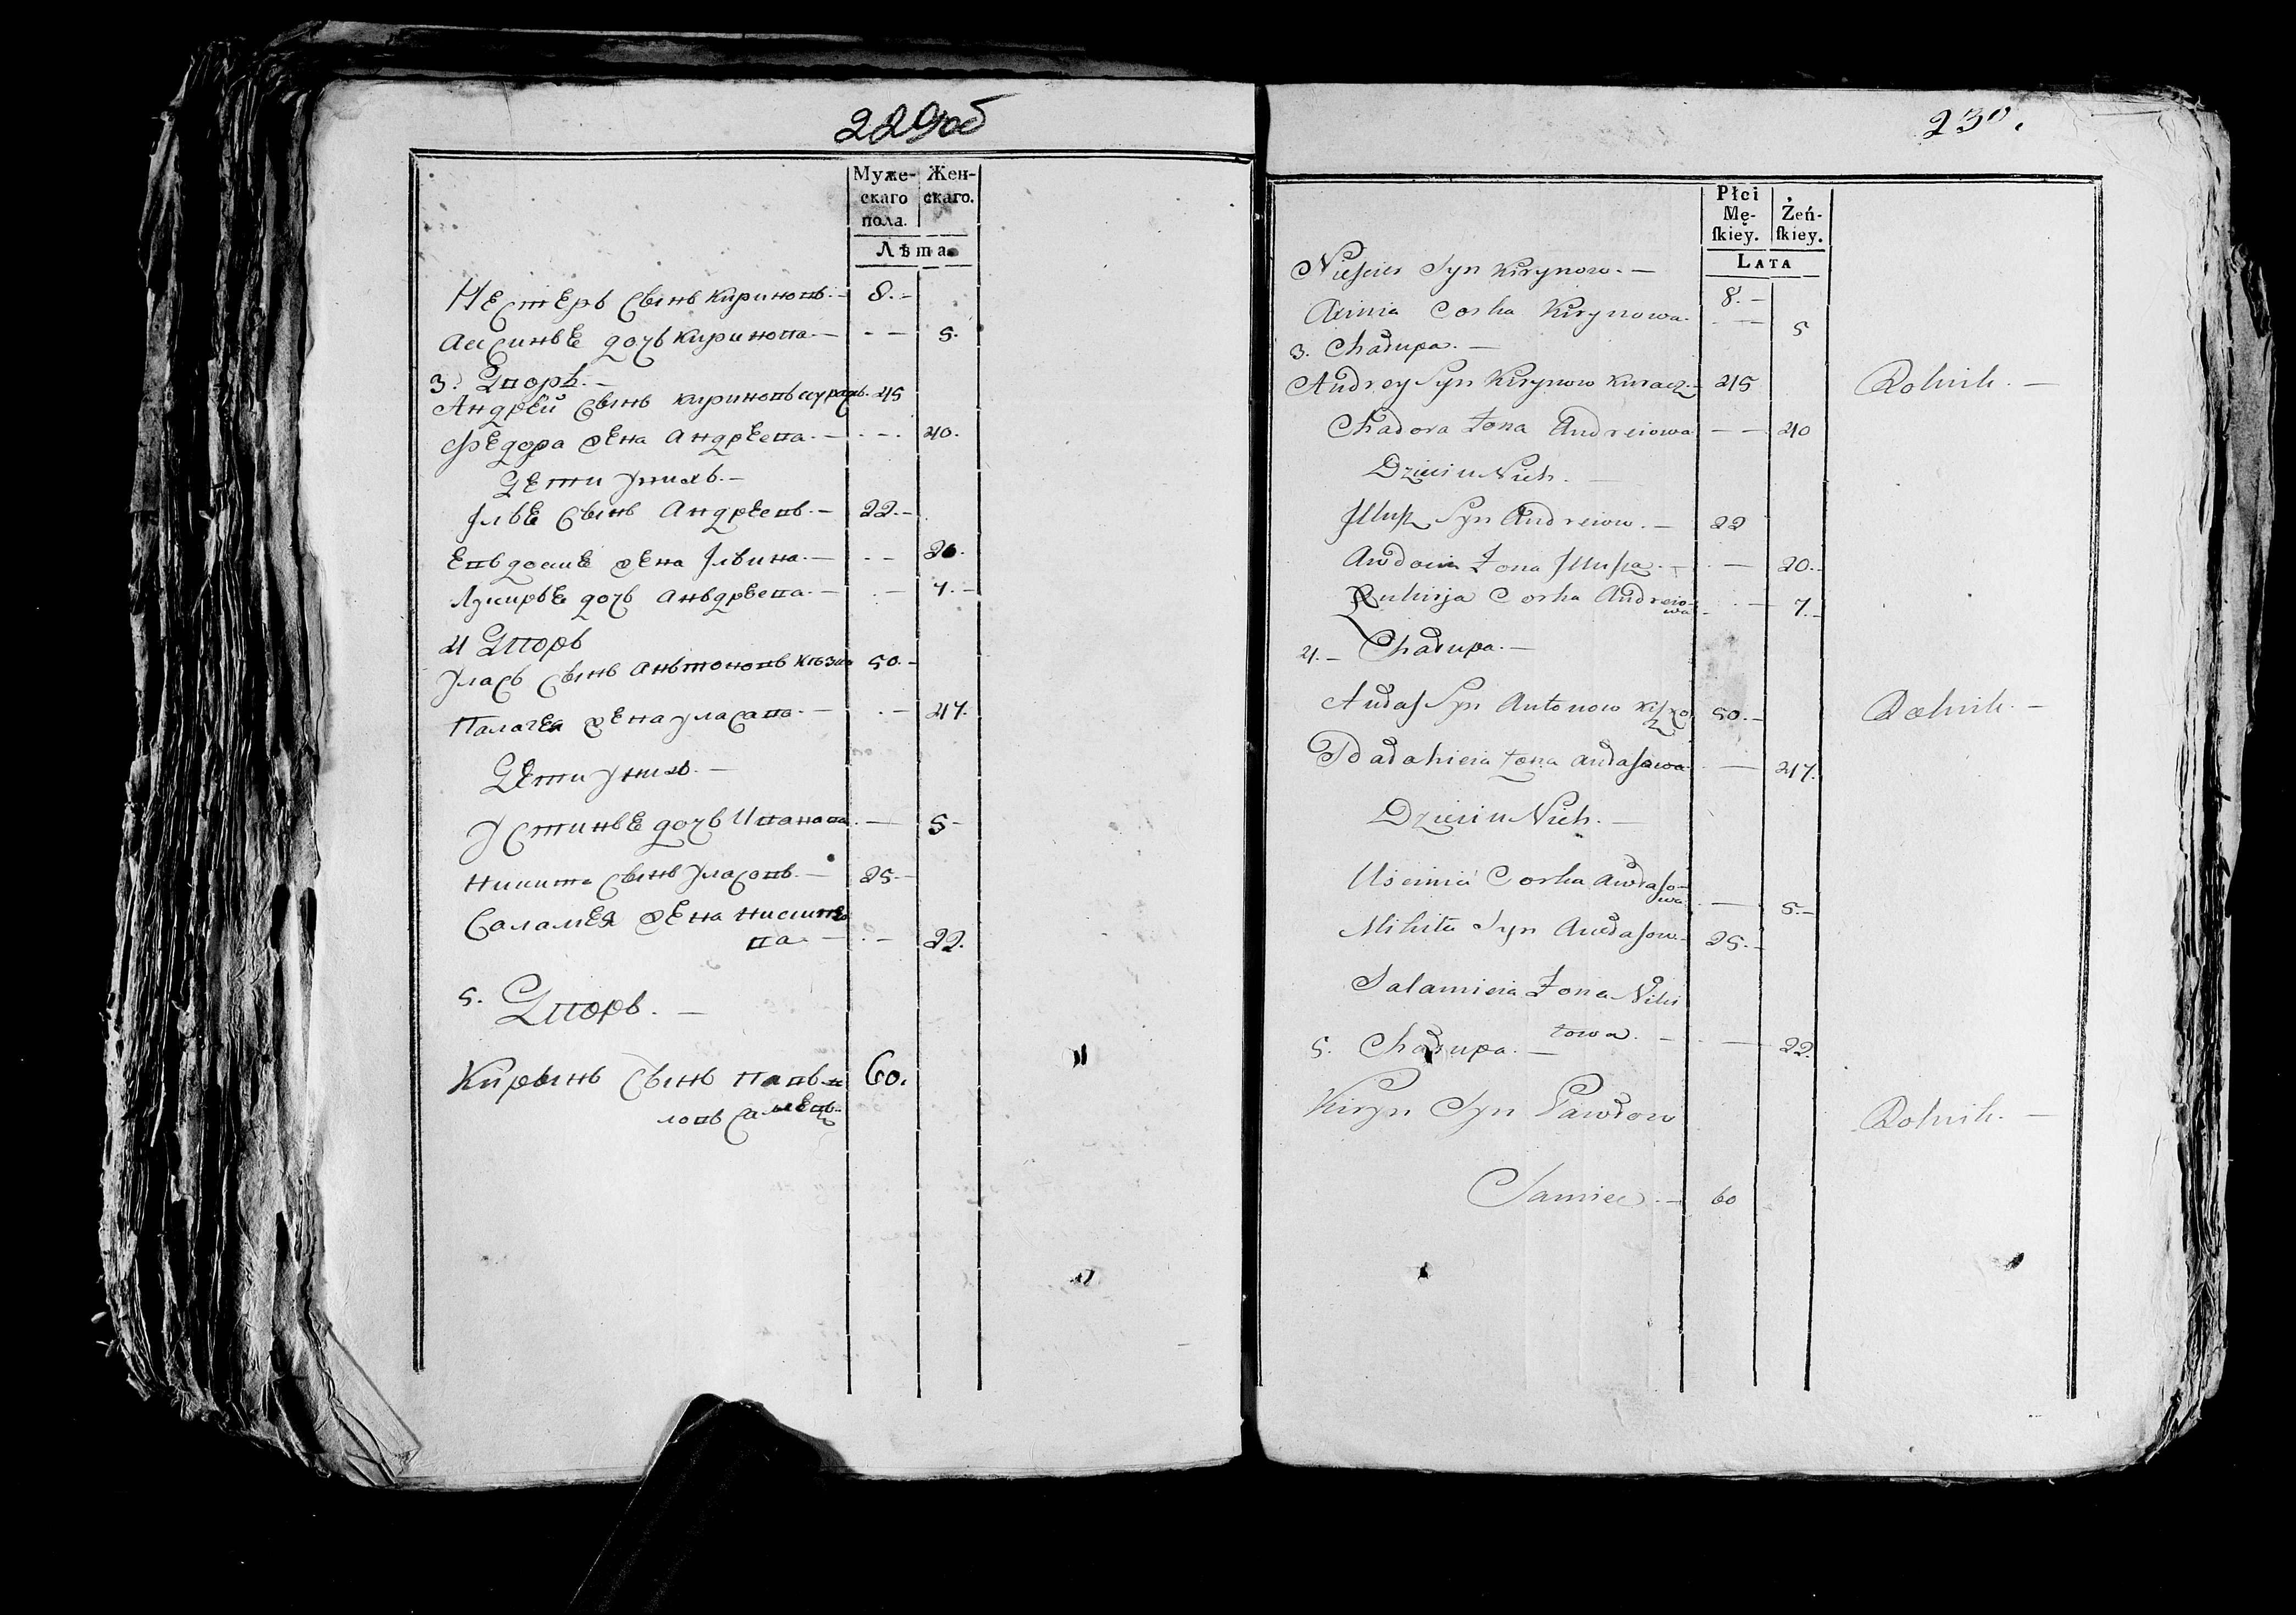 229об
Муже-
скаго
пола.
Жен-
скаго.
Лѣта
Нестеръ сынъ Кириновъ. — 8. —
Аксинье дочь Киринова — 5.
3. Дворъ. —
Андрей сынъ Кириновъ Курачъ. 45
Федора жена Андреева. — 40.
Дети у нихъ. —
Улье сынъ Андреевъ. — 22. —
Евдокие жена Ульина. — 20.
Лукирье дочь Аньдреева. — 7. —
4 Дворъ
Уласъ сынъ Аньтоновъ 50. —
Палагея жена Уласава. — 47.
Дети у нихъ. —
Устинье дочь 5 —
Никита сынъ Уласовъ. — 25. —
Саламея жена Никито
ва. — 22.
5. Дворъ. —
Кирынъ сынъ Пав 60.
ловъ Самецъ.
230.
Płci
Mę-
ſkiey.
Żeń-
ſkiey.
LATA
Syn Kirynow. —
8. —
Corka Kirynowa. — 5
3. Chałupa. —
Andrey Syn Kirynow Kuracz. 45 Rolnik. —
Chadora Żona Andreiowa — 40
Dzieci u Nich. —
Syn Andreiow. — 22
Awdocia Żona — 20. —
Corka Andreio-
wa — 7. —
4. — Chałupa. —
Aułas Syn Antonow 50. — Rolnik. —
Żona Aułasowa — 47.
Dzieci u Nich. —
Corka Aułaso-
wa — 5. —
Mikita Syn Aułasow. — 25. —
Salamieia Żona Niki
towa. — 22.
5. Chałupa. —
Kiryn Syn Pawłow Rolnik. —
Samiec. — 60